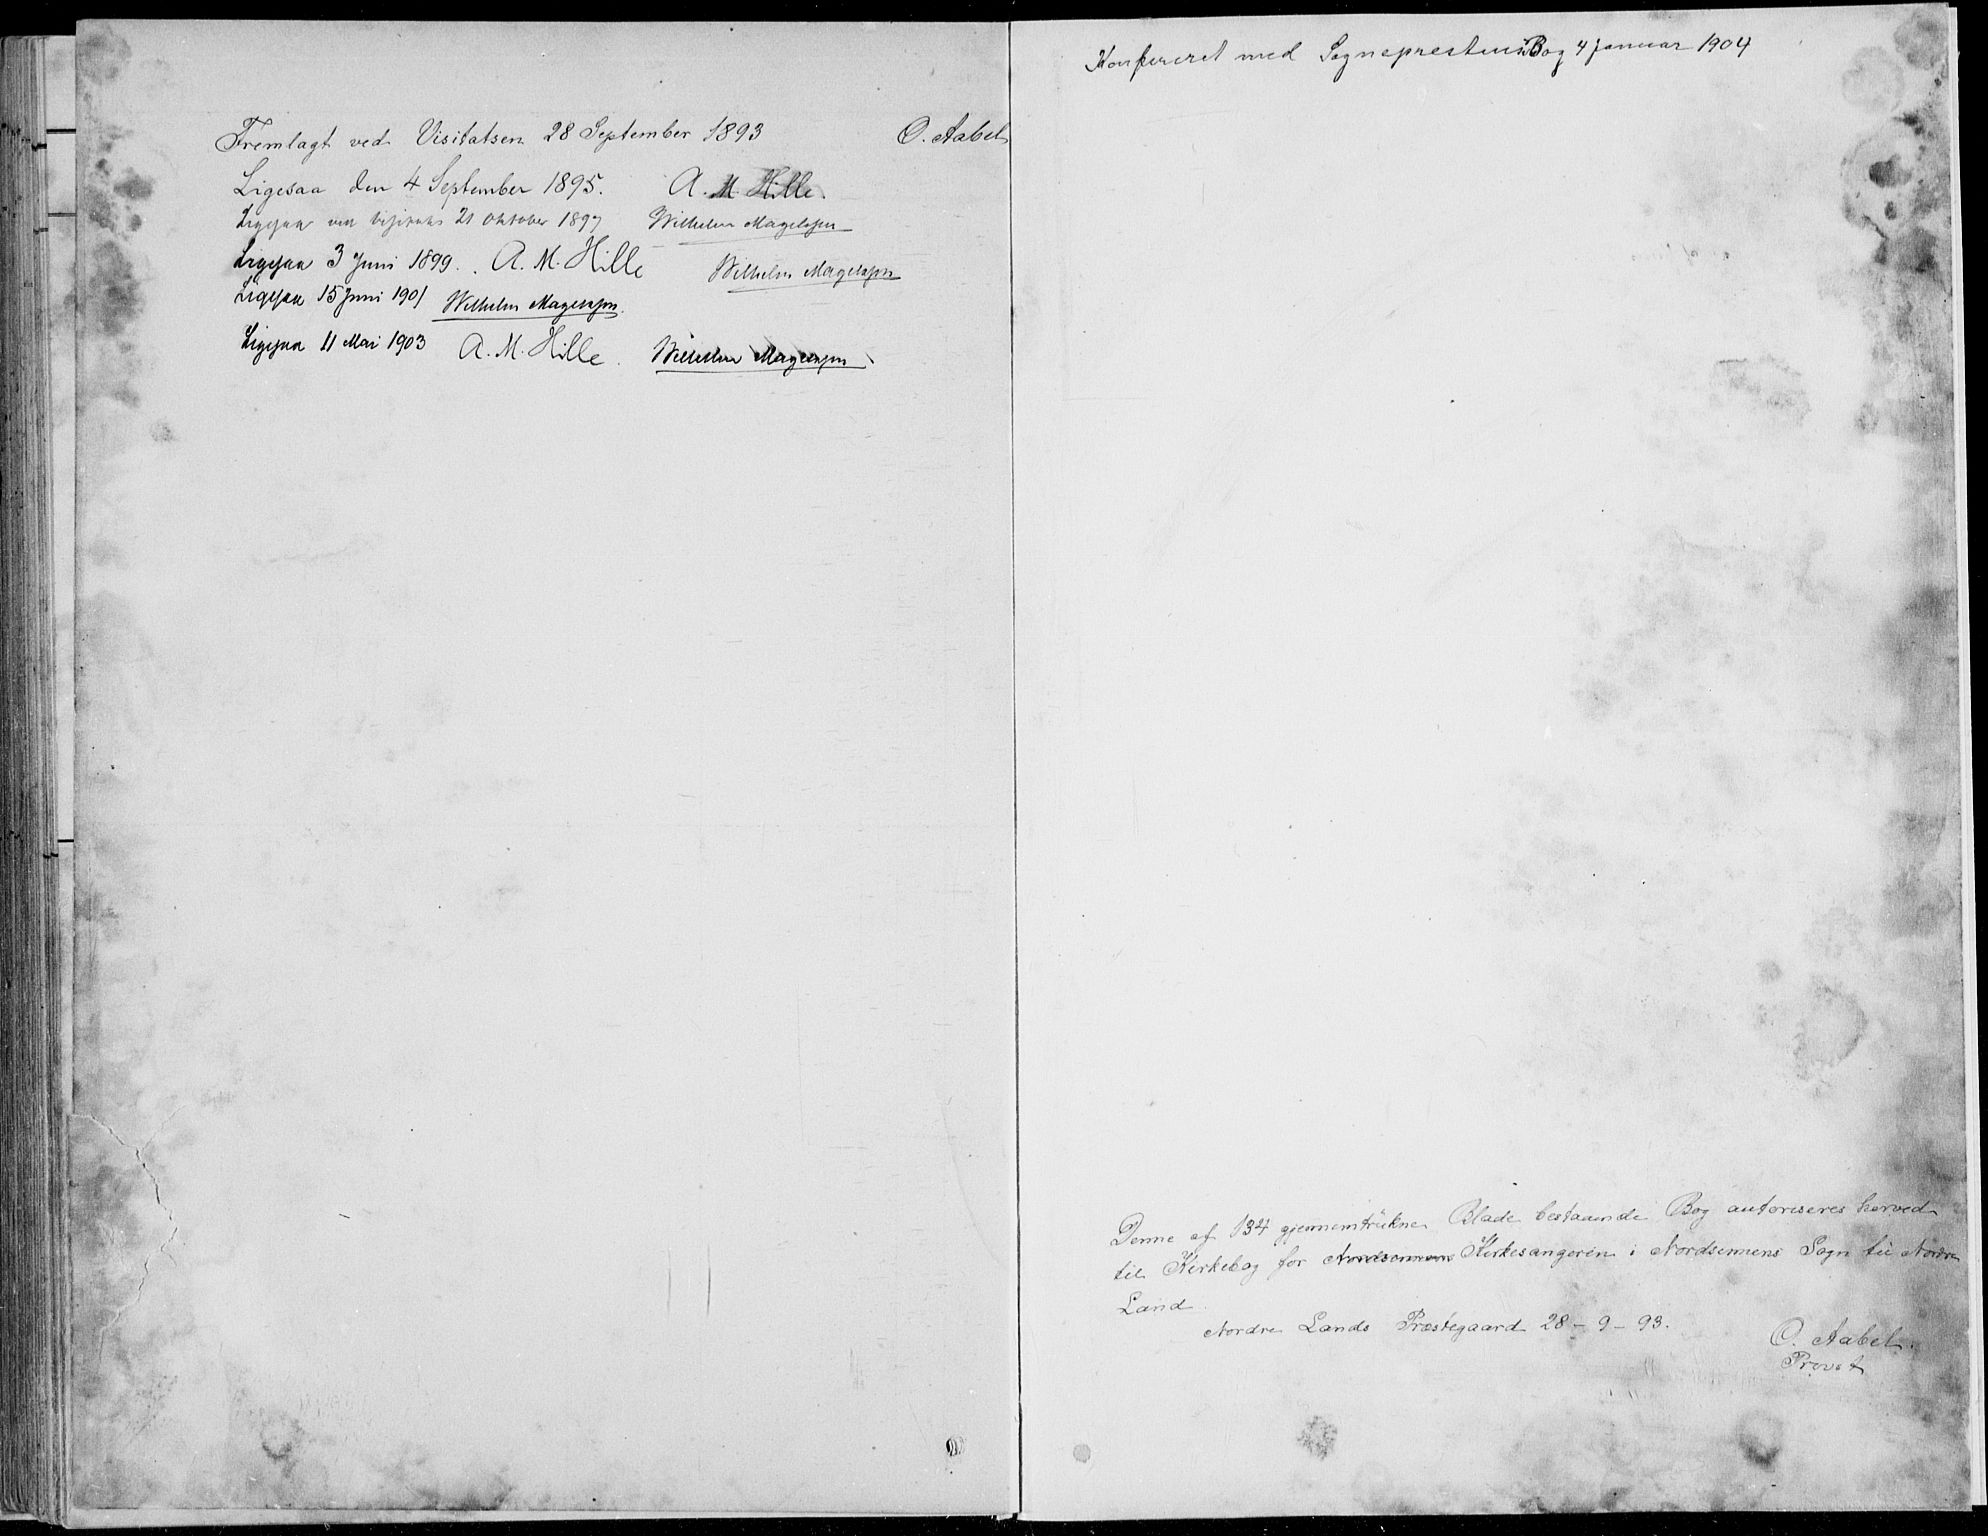 Fremlagt ved Visitatsen 28 September 1893 O. Aabel
Ligesaa den 4 September 1895. A. M. Hille.
Ligesaa ved Visitats 21 Oktober 1897 Wilhelm Magelssen
Ligesaa 3 Juni 1899. A. M. Hille Wilhelm Magelssen
Ligesaa 15 Juni 1901 Wilhelm Magelssen.
Ligesaa 11 Mai 1903 A. M. Hille. Wilhelm Magelssen
Konfereret med Sogneprestens Bog 4 Januar 1904
Denne af 134 gjennemtrukne Blade bestaaende Bog autoriseres herved
til Kirkebog for Nordsinnens Kirkesangeren i Nordsinnens Sogn til Nordre
Land.
Nordre Lands Præstegaard 28-9-93.
O. Aabel.
Provst